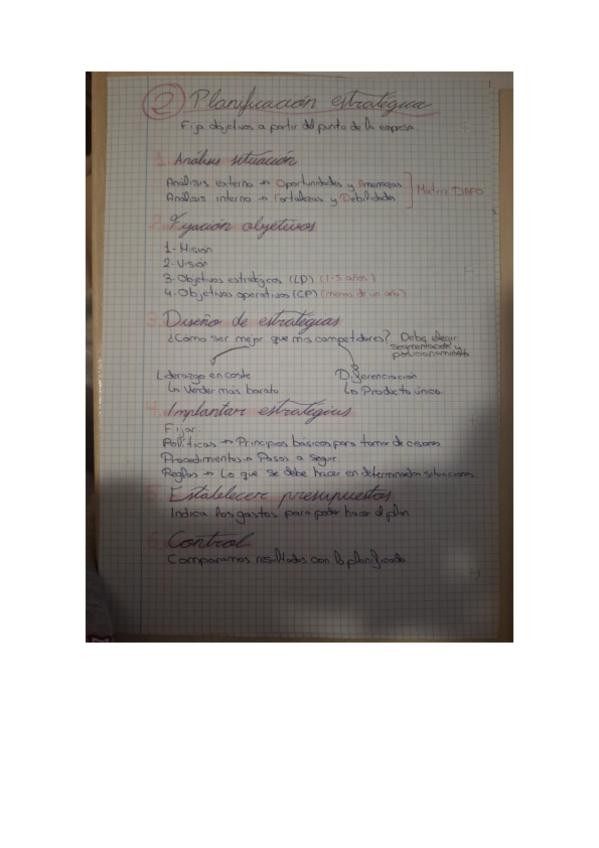 2 Planificación estratégica
Fija objetivos a partir del punto de la empresa.
1. Análisis situación
Análisis externo → Oportunidades y Amenazas
Análisis interno → Fortalezas y Debilidades
Matriz DAFO
2. Fijación objetivos
1- Misión
2- Visión
3- Objetivos estratégicos (LP) (1-5 años)
4- Objetivos operativos (CP) (menos de un año)
3. Diseño de estrategias
¿Cómo ser mejor que mis competidores? Debe elegir
segmentación y
posicionamiento
Liderazgo en coste
Diferenciación
↳ Vender más barato
↳ Producto único
4. Implantar estrategias
Fijar.
Políticas → Principios básicos para tomar decisiones
Procedimientos → Pasos a seguir.
Reglas → Lo que se debe hacer en determinadas situaciones
5. Establecer presupuestos
Indica los gastos para poder hacer el plan
6. Control
Comparamos resultados con lo planificado